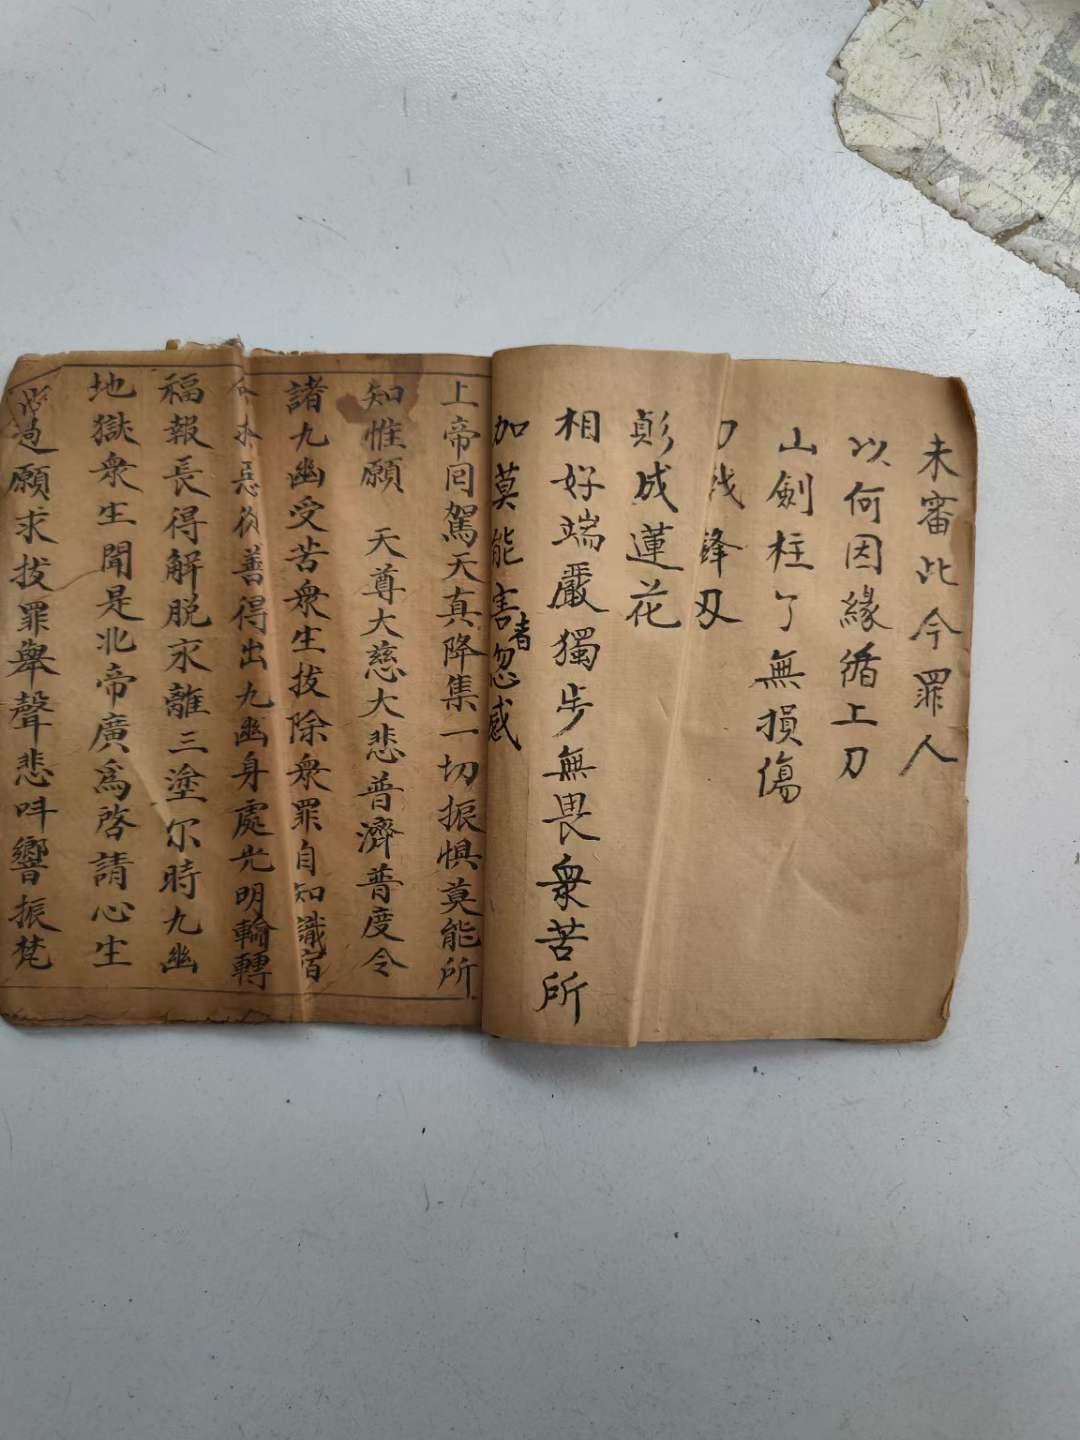 未審此今罪人
以何因緣循上刀
山劍柱了無損傷
刀戟鋒刃
成蓮花
相好端嚴獨步無畏衆苦所
加莫能害者忽感
上帝回駕天真降集一切振惧莫能所
知惟願　天尊大慈大悲普濟普度令
諸九幽受苦衆生拔除衆罪自知識宿
惡從善得出九幽身處光明輪轉
福報長得解脱永離三塗尔時九幽
地獄衆生聞是北帝廣爲啓請心生
過願求拔罪舉聲悲呌響振梵